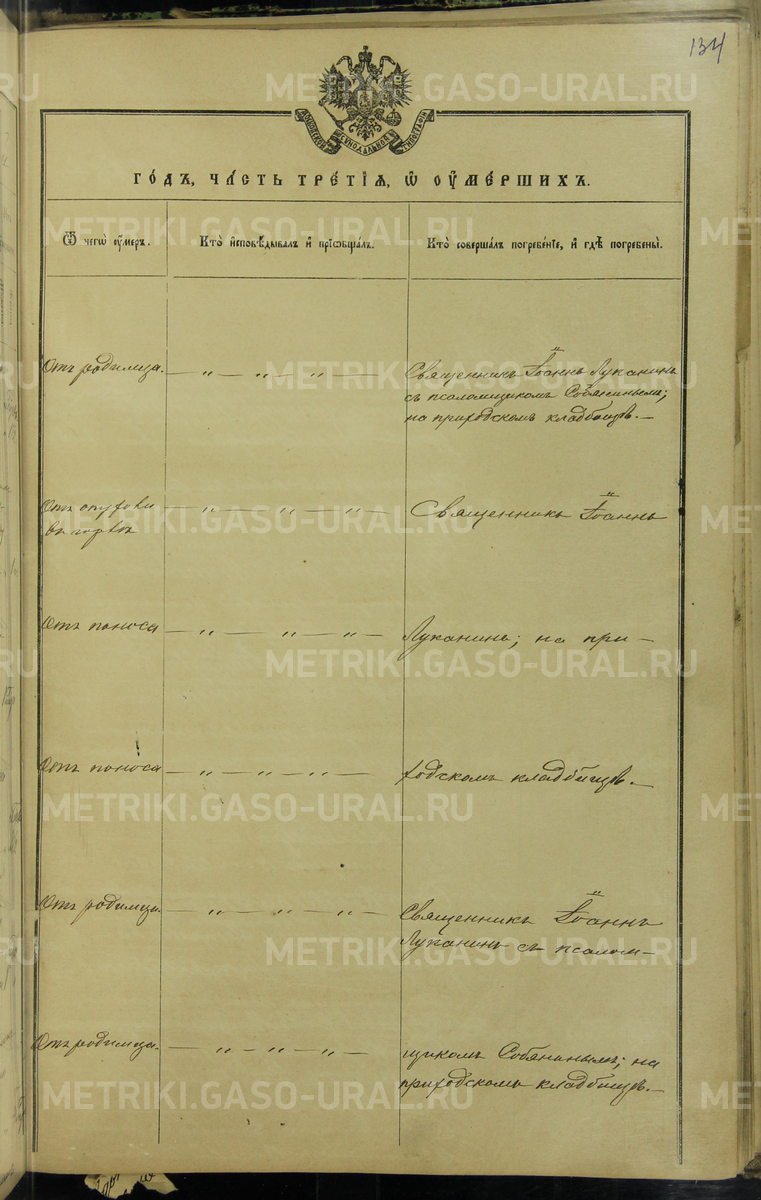 134
МОСКОВСКОЙ СѴНОДАЛЬНОЙ ТИПОГРАФІИ
ГО́ДЪ, ЧА́СТЬ ТРЕ́ТІѦ, Ѡ҆ ОУ҆МЕ́РШИХЪ.
Ѿ чегѡ̀ оу҆́меръ.
Кто̀ и҆сповѣ́дывалъ и҆ прїѡбща́лъ.
Кто̀ соверша́лъ погребе́нїе, и҆ гдѣ̀ погребены̀.
Отъ родимца. — „ — „ „ —
Священникъ Іоаннъ Луканинъ
съ псаломщикомъ Собянинымъ;
на приходскомъ кладбищѣ. —
Отъ опухоли
въ горлѣ — „ — „ — „ —
Священникъ Іоаннъ
Отъ поноса — „ — „ — „ —
Луканинъ; на при-
Отъ поноса — „ — „ — „ —
ходскомъ кладбищѣ. —
Отъ родимца. — „ — „ — „ —
Священникъ Іоаннъ
Луканинъ съ псалом-
Отъ родимца. — „ — „ — „ —
щикомъ Собянинымъ; на
приходскомъ кладбищѣ. —
METRIKI.GASO-URAL.RU